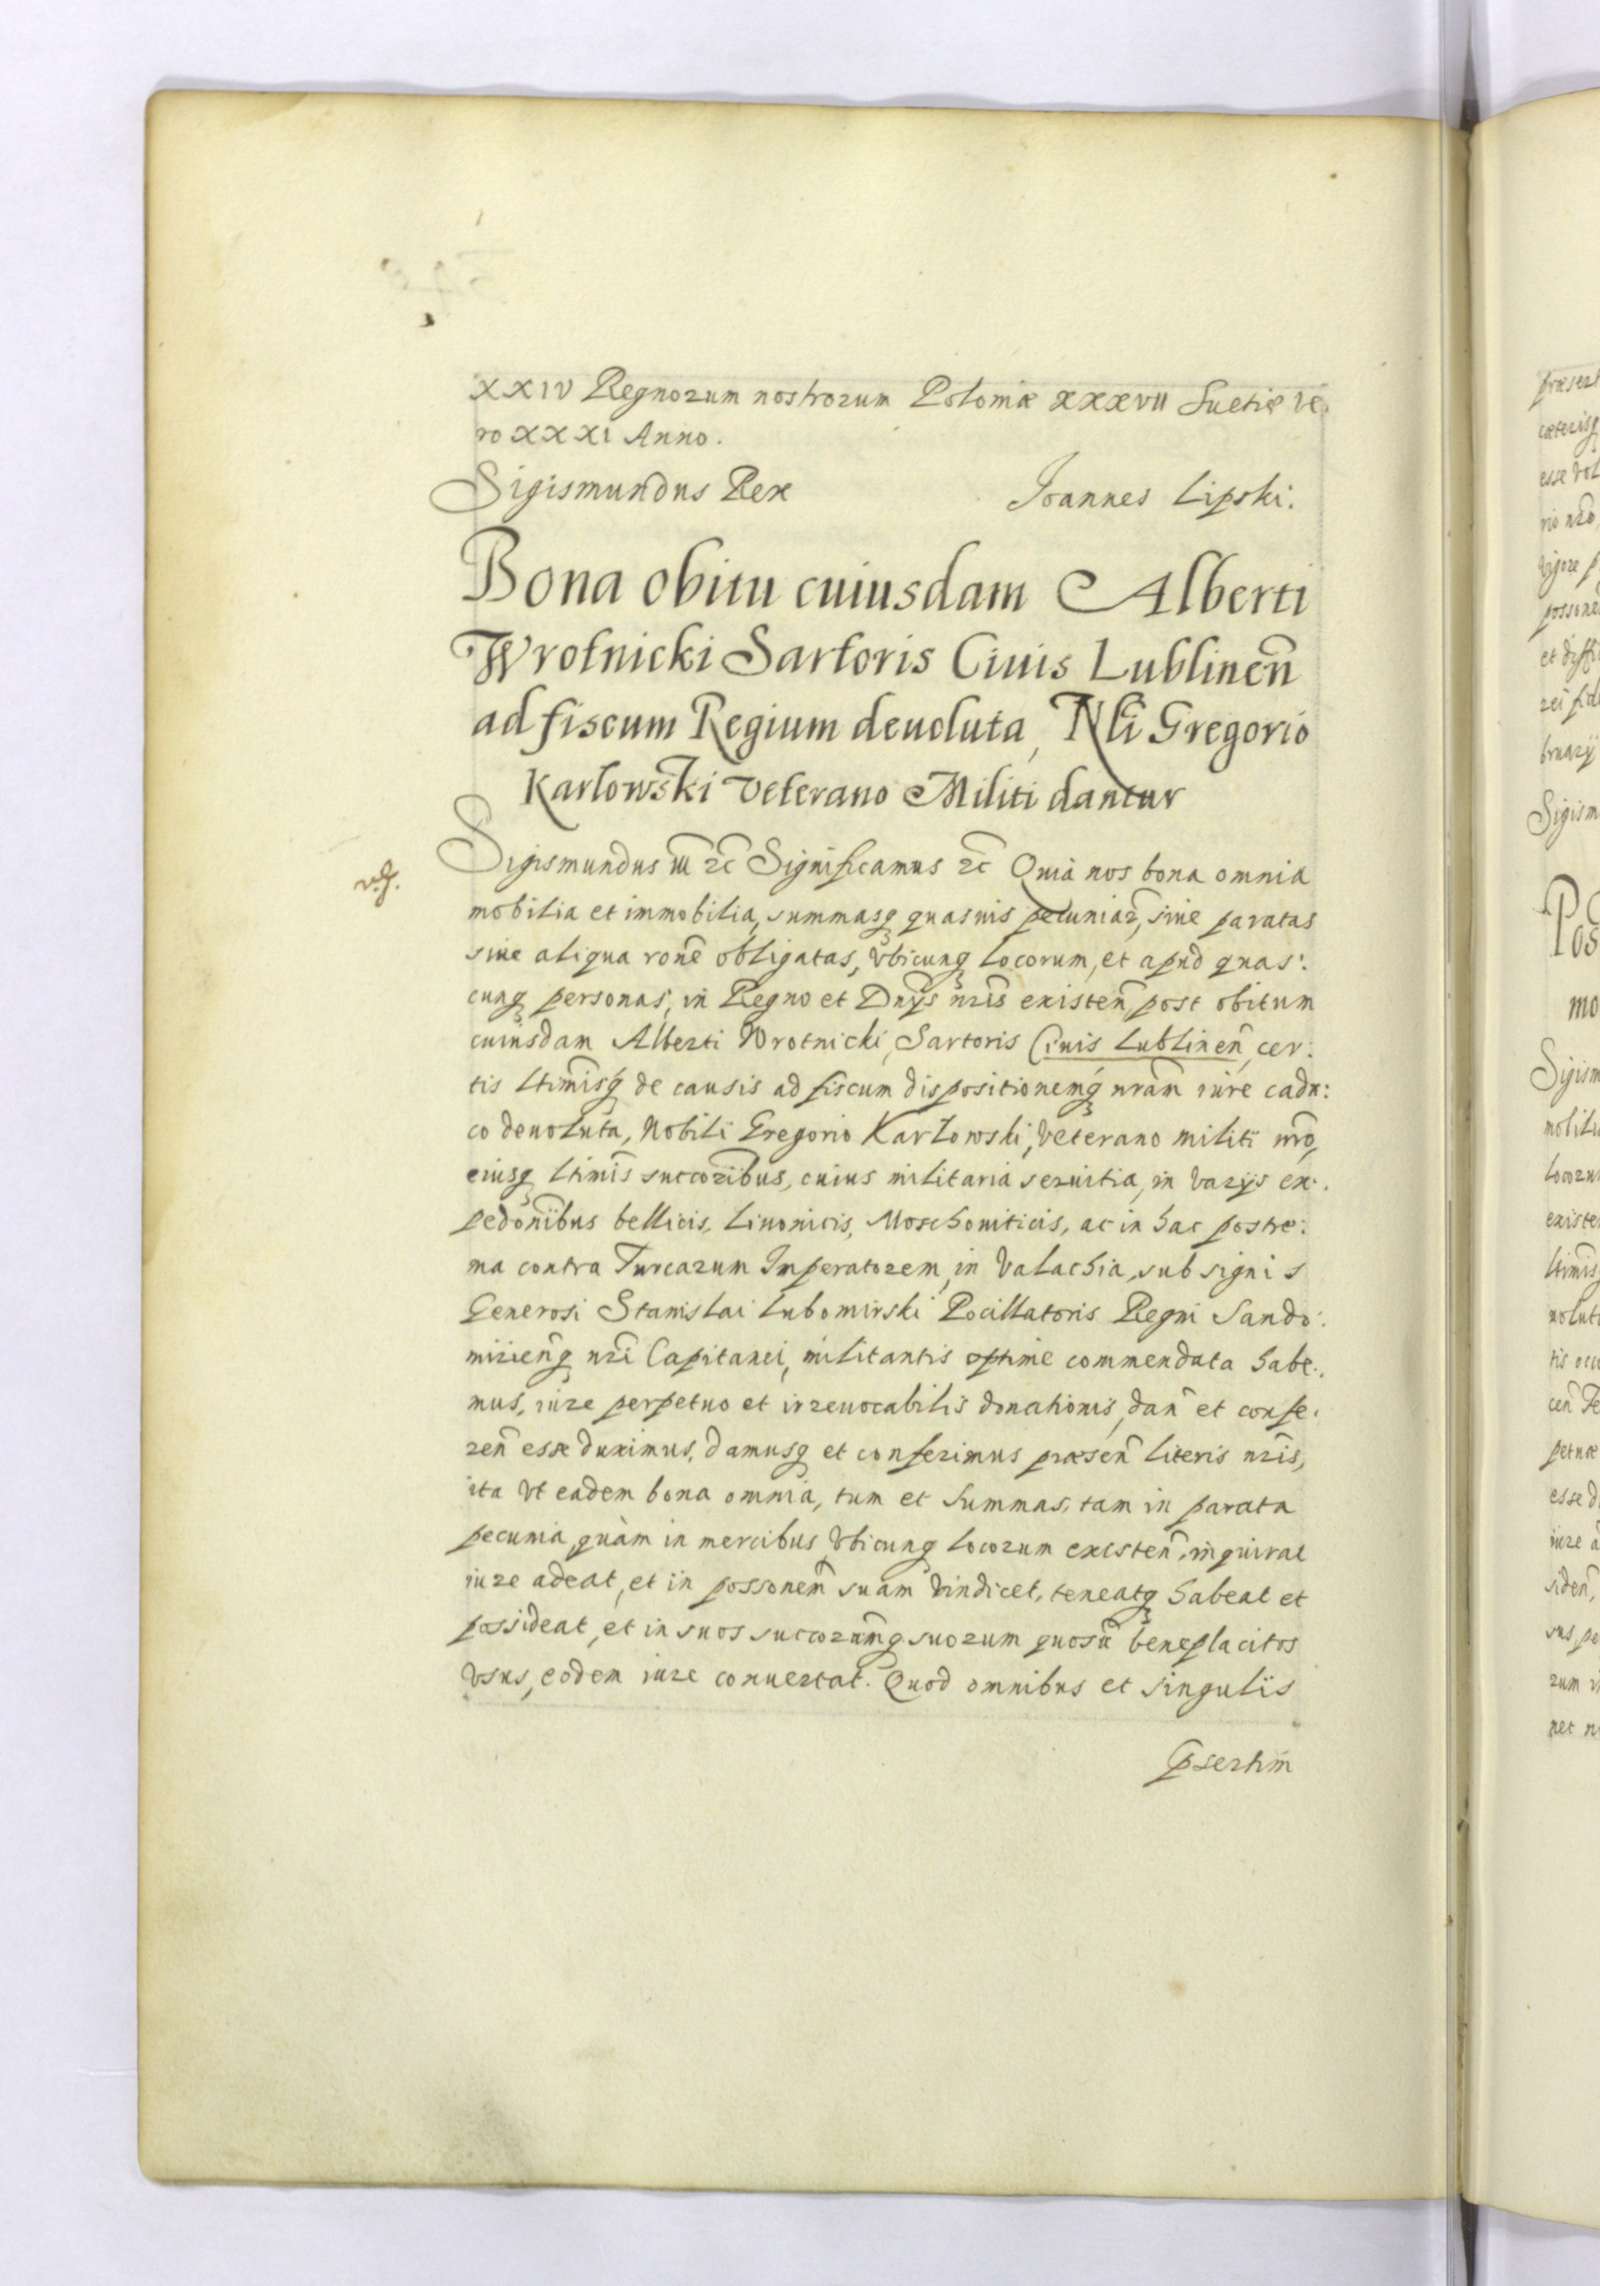 XXIV Regnorum nostrorum Poloniæ XXXVII Suetiæ ve
ro XXXI Anno.
Sigismundus Rex Joannes Lipski.
Bona obitu cuiusdam Alberti
Wrotnicki Sartoris Ciuis Lublineñ
ad fiscum Regium deuoluta, Nli Gregorio
Karlowski veterano Militi dantur
Sigismundus III ꝛc Significamus ꝛc Quia nos bona omnia
v.g.
mobilia et immobilia, summasq quasuis pecuniar, siue paratas
siue aliqua rone obligatas, vbicunq locorum, et apud quas:
cunq personas, in Regno et Dnys nris existeñ post obitum
cuiusdam Alberti Wrotnicki, Sartoris Ciuis Lublineñ, cer:
tis ltimisq de causis ad fiscum dispositionemq nram iure cadu:
co deuoluta, Nobili Gregorio Karlowski, veterano militi nro,
eiusq ltimis succoribus, cuius militaria seruitia, in varijs ex:
pedonibus bellicis, Liuonicis, Moschouiticis, ac in hac postre:
ma contra Turcarum Imperatorem, in Valachia, sub signis
Generosi Stanislai Lubomirski Pocillatoris Regni Sando:
mirieñq nri Capitanei, militantis optime commendata habe:
mus, iure perpetuo et irreuocabilis donationis, dañ et confe:
reñ esse duximus, damusq et conferimus præseñ literis nris,
ita vt eadem bona omnia, tum et summas, tam in parata
pecunia, quàm in mercibus vbicunq locorum existeñ, inquirat
iure adeat, et in possonem suam vindicet, teneatq habeat et
possideat, et in suos succorumq suorum quosũ beneplacitos
vsus, eodem iure conuertat. Quod omnibus et singulis
psertim